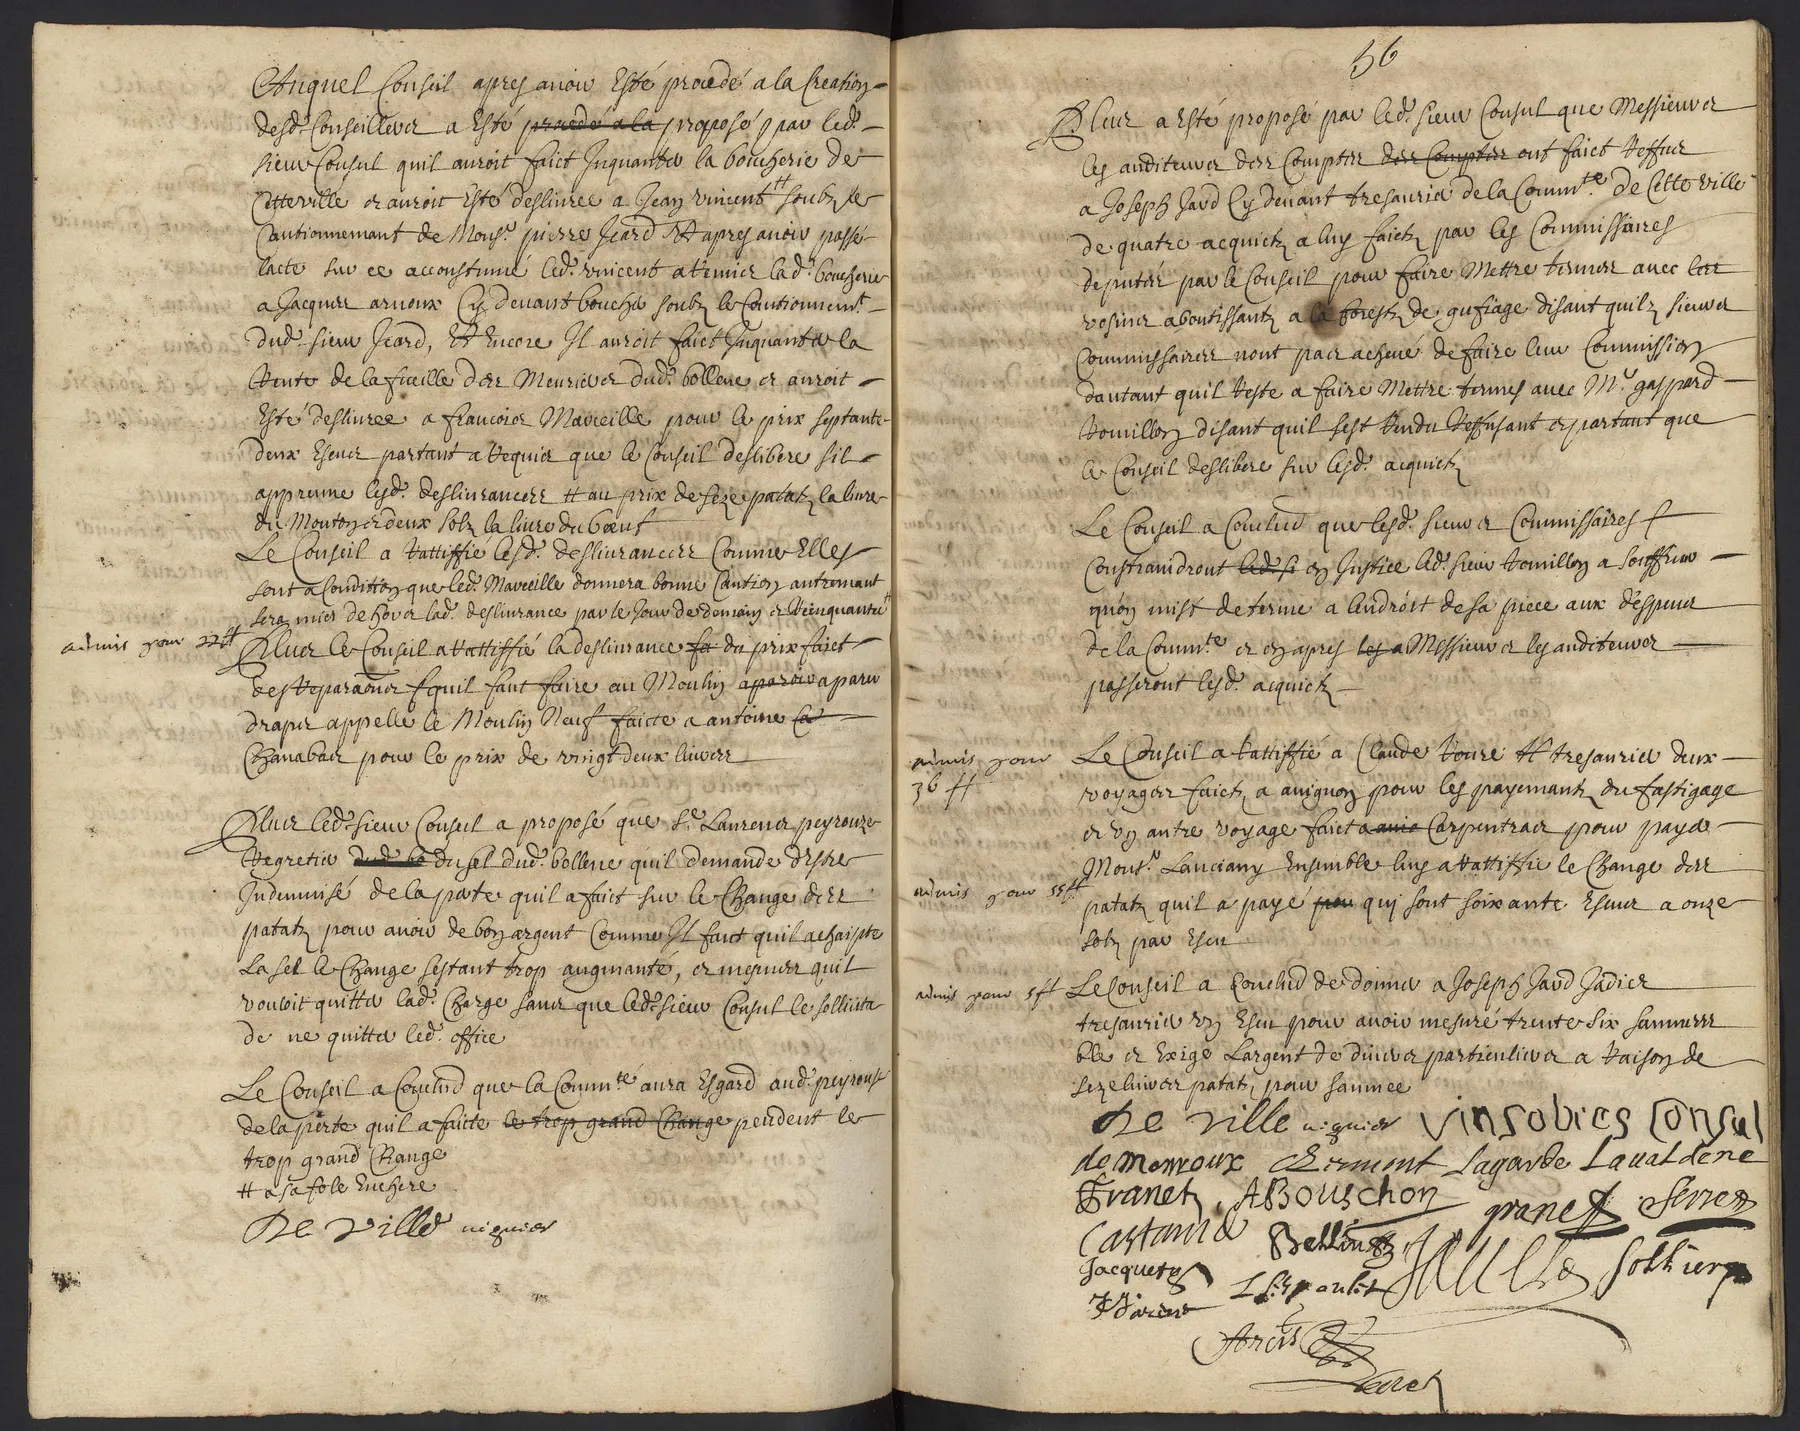 Auquel Conseil apres avoir Esté procedé a la Creation
desd. Conseilliers a Esté procedé a la proposé par led.
sieur Consul quil auroit faict Inquanter la boucherie de
Cette ville et auroit Esté deslivree a Jean vincent # soubz le
Cautionnemant de Mons.r pierre Jcard Et apres avoir passé
lacte sur ce accoustumé led. vincent a remis lad. boucherie
a Jacques arnoux Cy devant boucher soubz le Cautionnem.t
dud. sieur Jcard, Et Encore Il auroit faict Inquanter la
Rente de la fueille des Meuriers dud. bollene et auroit
Esté deslivree a francois Marieille pour le prix septante
deux Escus partant a Requis que le Conseil deslibere sil
appreuve lesd. deslivrances # au prix de seze patatz la livre
du Mouton et deux solz la livre du bœuf
Le Conseil a Rattiffié lesd. deslivrances Comme Elles
sont a Condition que led. Marieille donnera bonne Caution autremant
sera mis dehors lad. deslivrance par le Jour de demain et Reinquantée #
admis pour 22 ff
Plus le Conseil a Rattiffié la deslivrance fa du prix faict
des Reparaōns quil faut faire au Moulin aparoir a parer
draps appellé le Moulin Neuf faicte a antoine Ca
Chanabas pour le prix de vingt deux livres
Plus led. sieur Conseil a proposé que S.r Laurens peyrouze
Regretier dud. bo du sel dud. bollene quil demande destre
Indemnisé de la perte quil a faict sur le Change des
patatz pour avoir de bon argent Comme Il faut quil achaipte
La sel le Change sestant trop augmanté, et mesmes quil
vouloit quitter lad. Charge sans que led. sieur Consul le sollicita
de ne quitter led. office
Le Conseil a Conclud que la Comm.té aura Esgard aud. peyrouse
de la perte quil a faicte le trop grand Change pendent le
trop grand Change
# a sa fole Enchere
De ville viguier
56
Plus a Esté proposé par led. sieur Consul que Messieurs
les auditeurs des Comptes des Comptes ont faict Reffus
a Joseph Jard Cy devant tresaurier de la Comm.té de Cette ville
de quatre acquictz a luy faictz par les Commissaires
deputés par le Conseil pour faire Mettre termes avec les
voisins aboutissantz a la forestz de gufiage disant quilz sieurs
Commissaires nont pas achevé de faire leur Commission
dautant quil Reste a faire Mettre termes avec M.r gaspard
Romillon disant quil sest Rendu Reffusant et partant que
le Conseil deslibere sur lesd. acquictz
Le Conseil a Conclud que lesd. sieurs Commissaires
Constraindront led. si en Justice led. sieur Romillon a souffrir
quon mist de terme a lendroit de sa piece aux despens
de la Comm.té et en apres les a Messieurs les auditeurs
passeront lesd. acquictz
admis pour
36 ff
Le Conseil a Rattiffié a Claude Roure # tresaurier deux
voyages faictz a avignon pour les payemantz du fastigage
et un autre voyage faict a avig Carpentras pour payer
Mons.r Lanciany Ensemble luy a Rattiffié le Change des
admis pour 55 ff
patatz quil a payé pour quj sont soixante Escus a onze
solz par Escu
admis pour 5 ff
Le Conseil a Conclud de donner a Joseph Jard Jadis
tresaurier un Escu pour avoir mesuré trente six saumees
ble et Exigé Largent de divers particuliers a Raison de
seze livres patatz pour saumee
De ville viguier Vinsobres Consul
de Morroux Clermont Lagarde Lavaldene
Franetz ABouschon granet Serrez
Castanier Bellin
Jacquetz Solliers